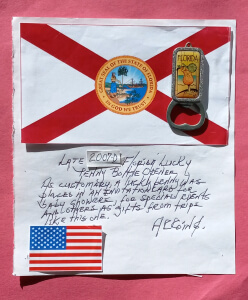 GREAT SEAL OF THE STATE OF FLORIDA
IN GOD WE TRUST
FLORIDA
LATE 2000'S Florida Lucky
Penny Bottle Opener
As customary, a lucky penny was
placed in an invitation card for
baby showers, for special events
and others as gifts from trips
like this one.